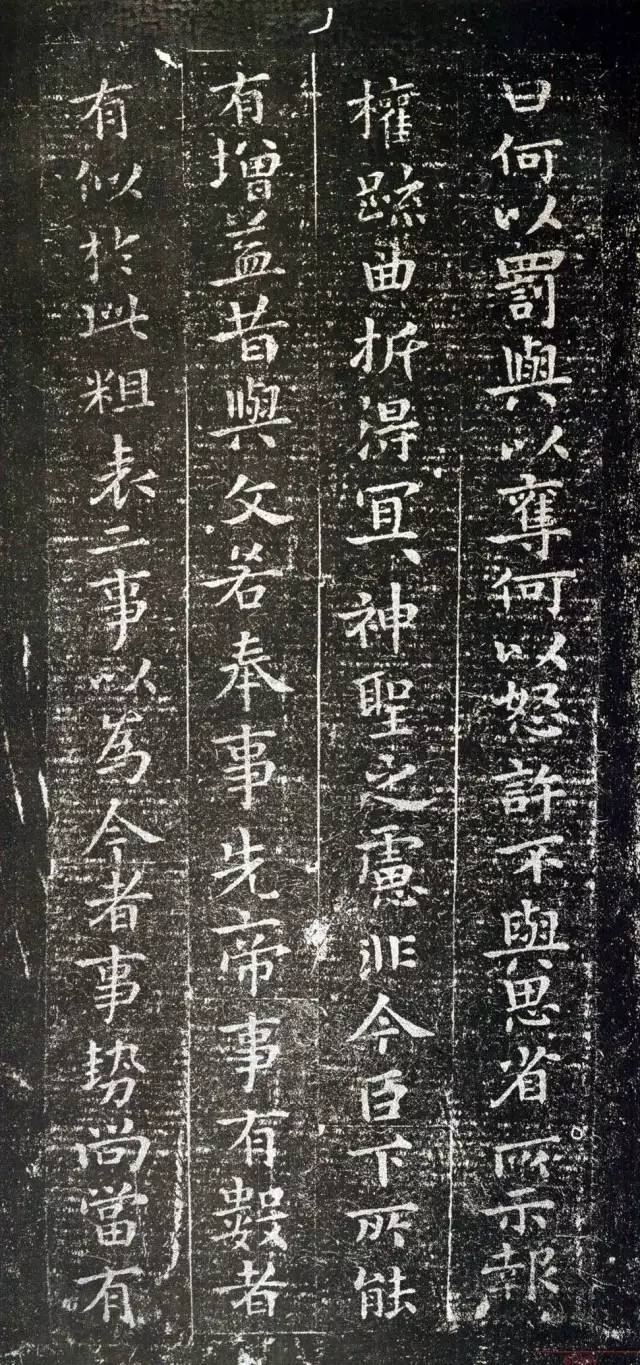 曰何以罰與以奪何以怒許不與思省所示報
權疏曲折得宜〻神聖之慮非今臣下所能
有增益昔與文若奉事先帝事有數者
有似於此粗表二事以為今者事勢尚當有